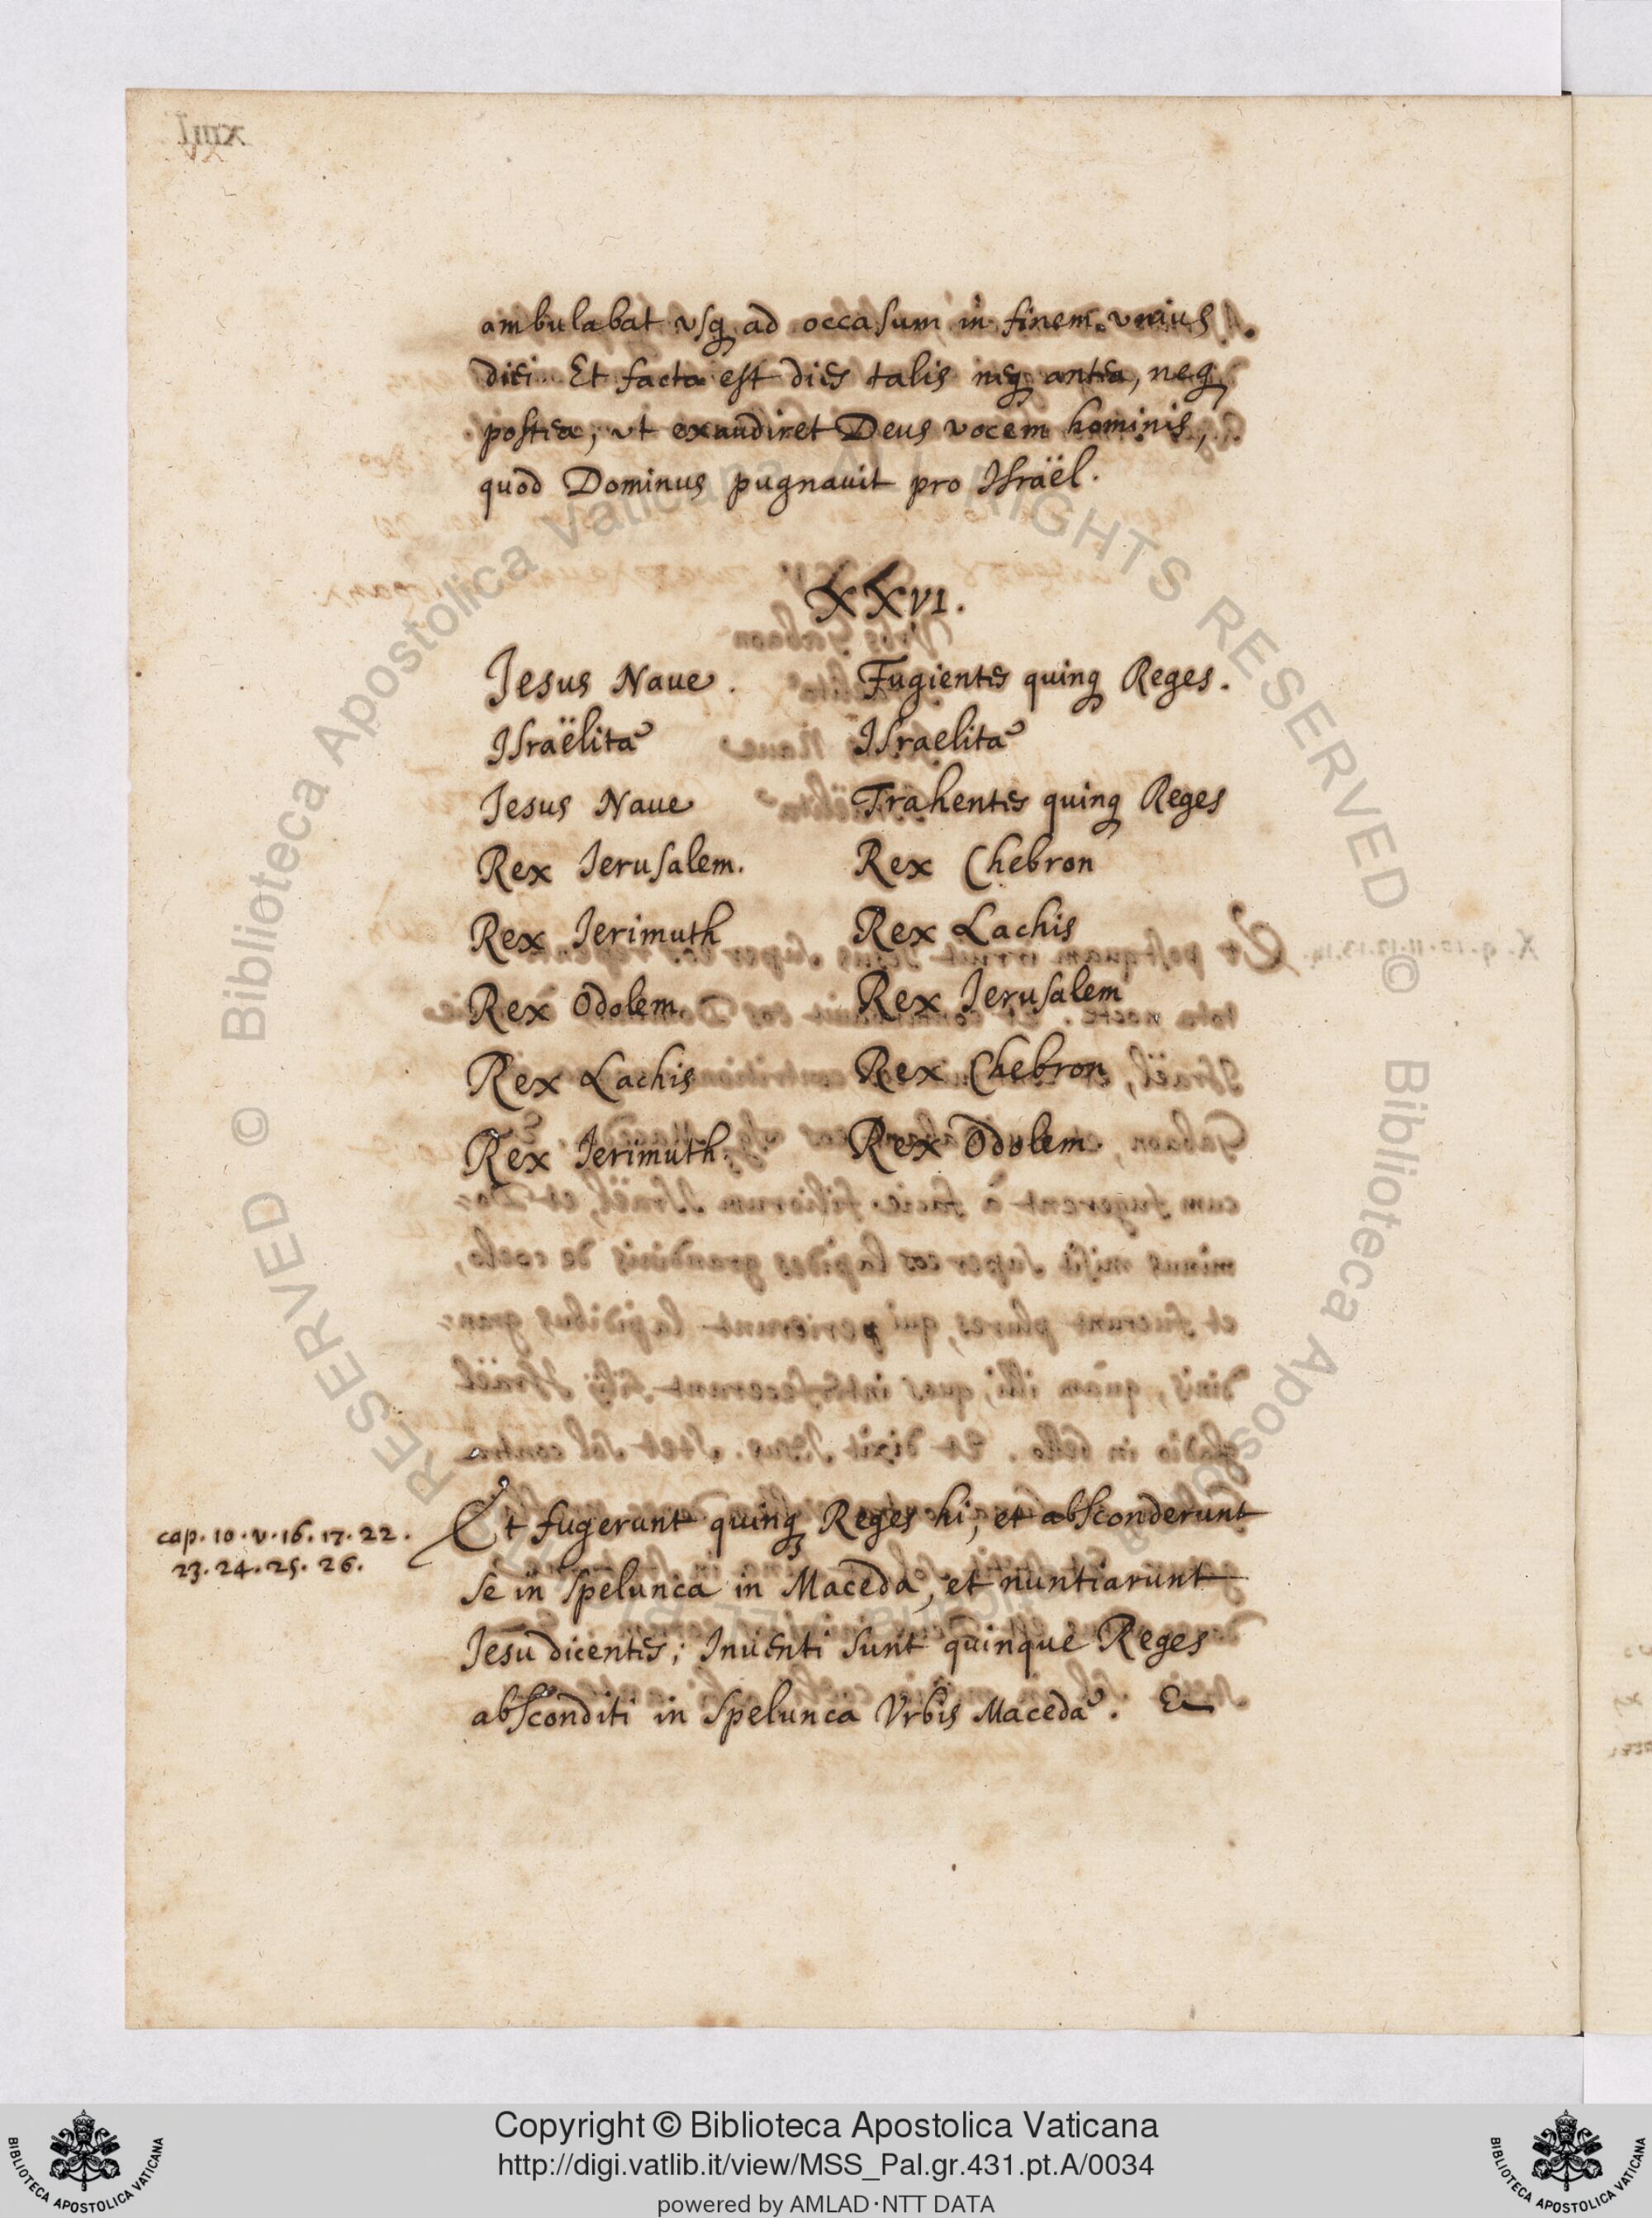 ambulabat vsq ad occasum, in finem vnius
diei. Et facta est dies talis neq antea, neq
postea, vt exaudiret Deus vocem hominis,
quod Dominus pugnauit pro Israël.
XXVI.
Jesus Naue. Fugientes quinq Reges.
Israëlitæ Israelitæ
Jesus Naue Trahentes quinq Reges
Rex Jerusalem. Rex Chebron
Rex Jerimuth Rex Lachis
Rex Odolem. Rex Jerusalem
Rex Lachis Rex Chebron
Rex Jerimuth. Rex Odolem.
cap. 10. v. 16. 17. 22.
23. 24. 25. 26.
Et fugerunt quinq Reges hi, et absconderunt
se in spelunca in Maceda, et nuntiarunt
Jesu dicentes; Inuenti sunt quinque Reges
absconditi in spelunca Vrbis Macedæ. Et
Copyright © Biblioteca Apostolica Vaticana
http://digi.vatlib.it/view/MSS_Pal.gr.431.pt.A/0034
powered by AMLAD·NTT DATA
BIBLIOTECA APOSTOLICA VATICANA
BIBLIOTECA APOSTOLICA VATICANA
© Biblioteca Apostolica Vaticana ALL RIGHTS RESERVED
© Biblioteca Apostolica Vaticana ALL RIGHTS RESERVED